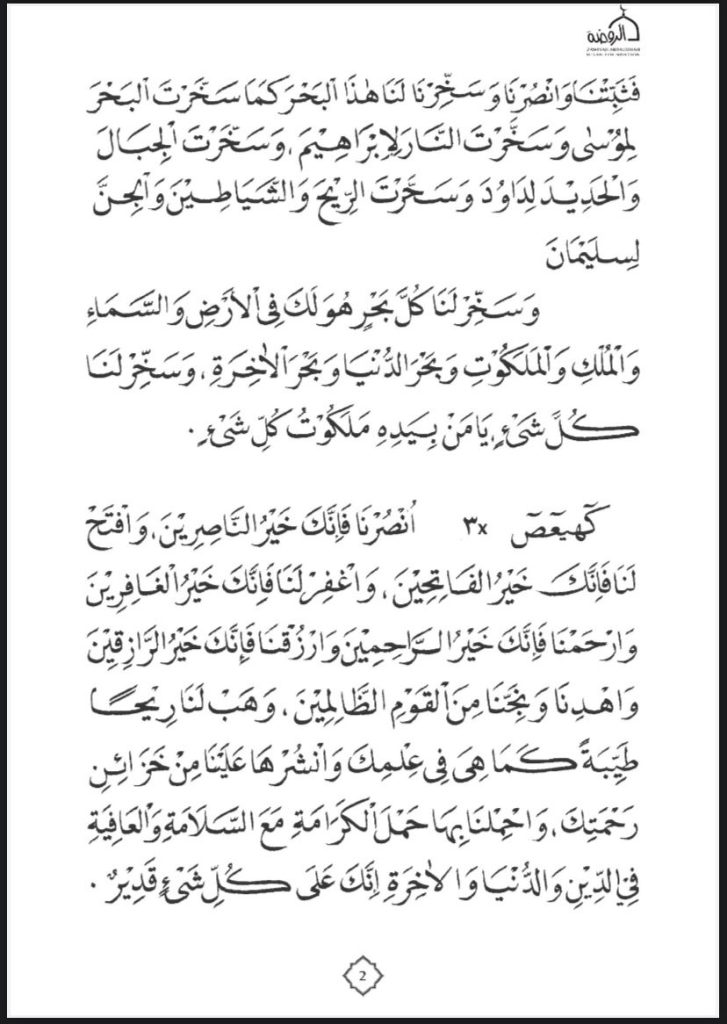 الروضة
فَثَبِّتْنَا وَانْصُرْنَا وَسَخِّرْنَا لَنَا هٰذَا الْبَحْرَ كَمَا سَخَّرْتَ الْبَحْرَ
لِمُوْسٰى وَسَخَّرْتَ النَّارَ لِإِبْرَاهِيْمَ ، وَسَخَّرْتَ الْجِبَالَ
وَالْحَدِيْدَ لِدَاوُدَ وَسَخَّرْتَ الرِّيْحَ وَالشَّيَاطِيْنَ وَالْجِنَّ
لِسِلَيْمَانَ
وَسَخِّرْ لَنَا كُلَّ بَحْرٍ هُوَ لَكَ فِى الْأَرْضِ وَالسَّمَاءِ
وَالْمُلْكِ وَالْمَلَكُوْتِ وَبَحْرَ الدُّنْيَا وَبَحْرَ الْاٰخِرَةِ ، وَسَخِّرْ لَنَا
كُلَّ شَيْءٍ يَا مَنْ بِيَدِهِ مَلَكُوْتُ كُلِّ شَيْءٍ .
كۤهيعۤصۤ ٣x أُنْصُرْنَا فَإِنَّكَ خَيْرُ النَّاصِرِيْنَ ، وَافْتَحْ
لَنَا فَإِنَّكَ خَيْرُ الْفَاتِحِيْنَ ، وَاغْفِرْ لَنَا فَإِنَّكَ خَيْرُ الْغَافِرِيْنَ
وَارْحَمْنَا فَإِنَّكَ خَيْرُ الرَّاحِمِيْنَ وَارْزُقْنَا فَإِنَّكَ خَيْرُ الرَّازِقِيْنَ
وَاهْدِنَا وَنَجِّنَا مِنَ الْقَوْمِ الظَّالِمِيْنَ ، وَهَبْ لَنَا رِيْحًا
طَيِّبَةً كَمَا هِيَ فِى عِلْمِكَ وَانْشُرْهَا عَلَيْنَا مِنْ خَزَائِنِ
رَحْمَتِكَ ، وَاحْمِلْنَا بِهَا حَمْلَ الْكَرَامَةِ مَعَ السَّلَامَةِ وَالْعَافِيَةِ
فِي الدِّيْنِ وَالدُّنْيَا وَالْاٰخِرَةِ إِنَّكَ عَلَى كُلِّ شَيْءٍ قَدِيْرٌ .
2